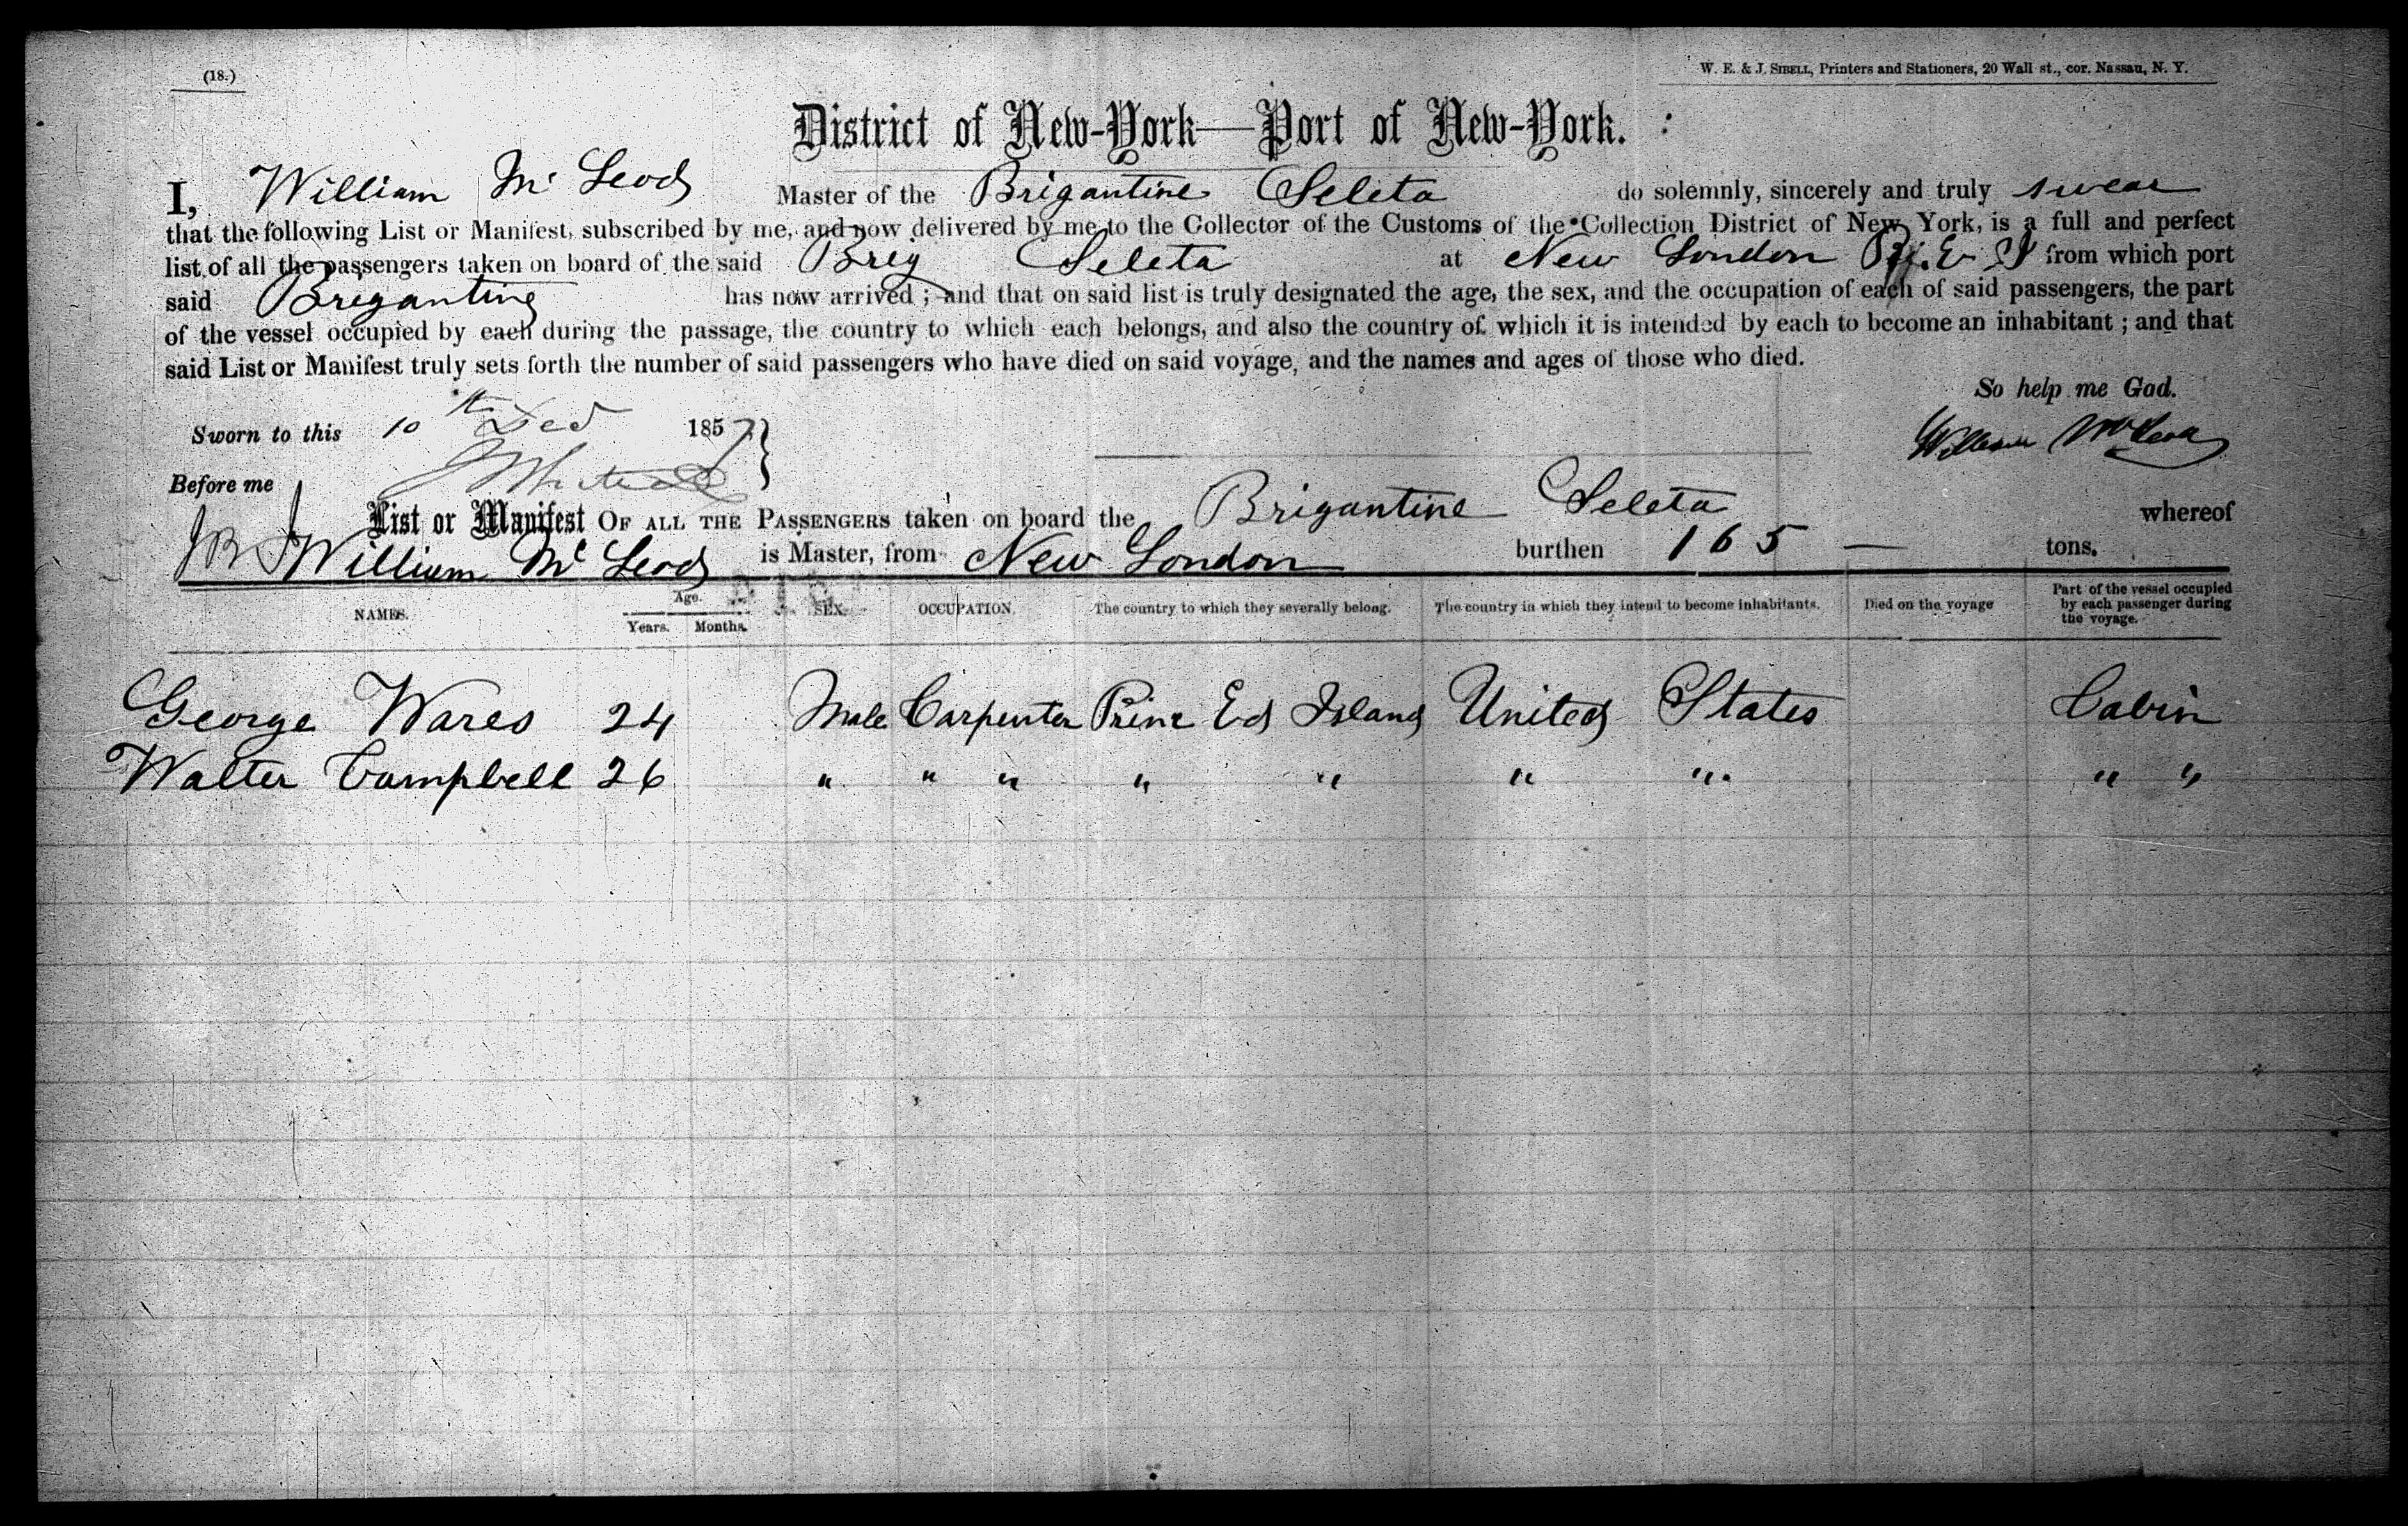 (18.)
W. E. & J. SIBELL, Printers and Stationers, 20 Wall st., cor. Nassau, N. Y.
District of New-York—Port of New-York.
I, William Mc Leod Master of the Brigantine Seleta do solemnly, sincerely and truly swear
that the following List or Manifest, subscribed by me, and now delivered by me to the Collector of the Customs of the Collection District of New York, is a full and perfect
list of all the passengers taken on board of the said Brig Seleta at New London Pr. E. I from which port
said Brigantine has now arrived; and that on said list is truly designated the age, the sex, and the occupation of each of said passengers, the part
of the vessel occupied by each during the passage, the country to which each belongs, and also the country of which it is intended by each to become an inhabitant; and that
said List or Manifest truly sets forth the number of said passengers who have died on said voyage, and the names and ages of those who died.
So help me God.
Sworn to this 10th Dec 1857
William McLeod
Before me
List or Manifest OF ALL THE PASSENGERS taken on board the Brigantine Seleta whereof
William Mc Leod is Master, from New London burthen 165 — tons.
NAMES. Age. Years. Months. SEX. OCCUPATION. The country to which they severally belong. The country in which they intend to become inhabitants. Died on the voyage Part of the vessel occupied by each passenger during the voyage.
George Wares 24 Male Carpenter Prine Ed Island United States Cabin
Walter Campbell 26 " " " " " " " " "